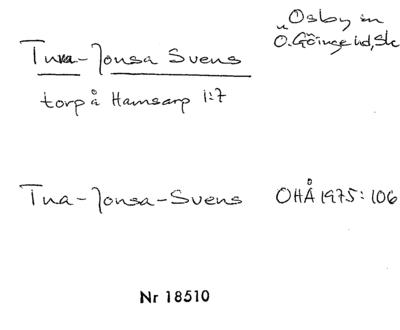 Osby sn
Ö. Göinge hd, Sk
Tuva-Jonsa Svens
torp å Hamsarp 1:7
Tua-Jonsa-Svens OHÅ 1975:106
Nr 18510